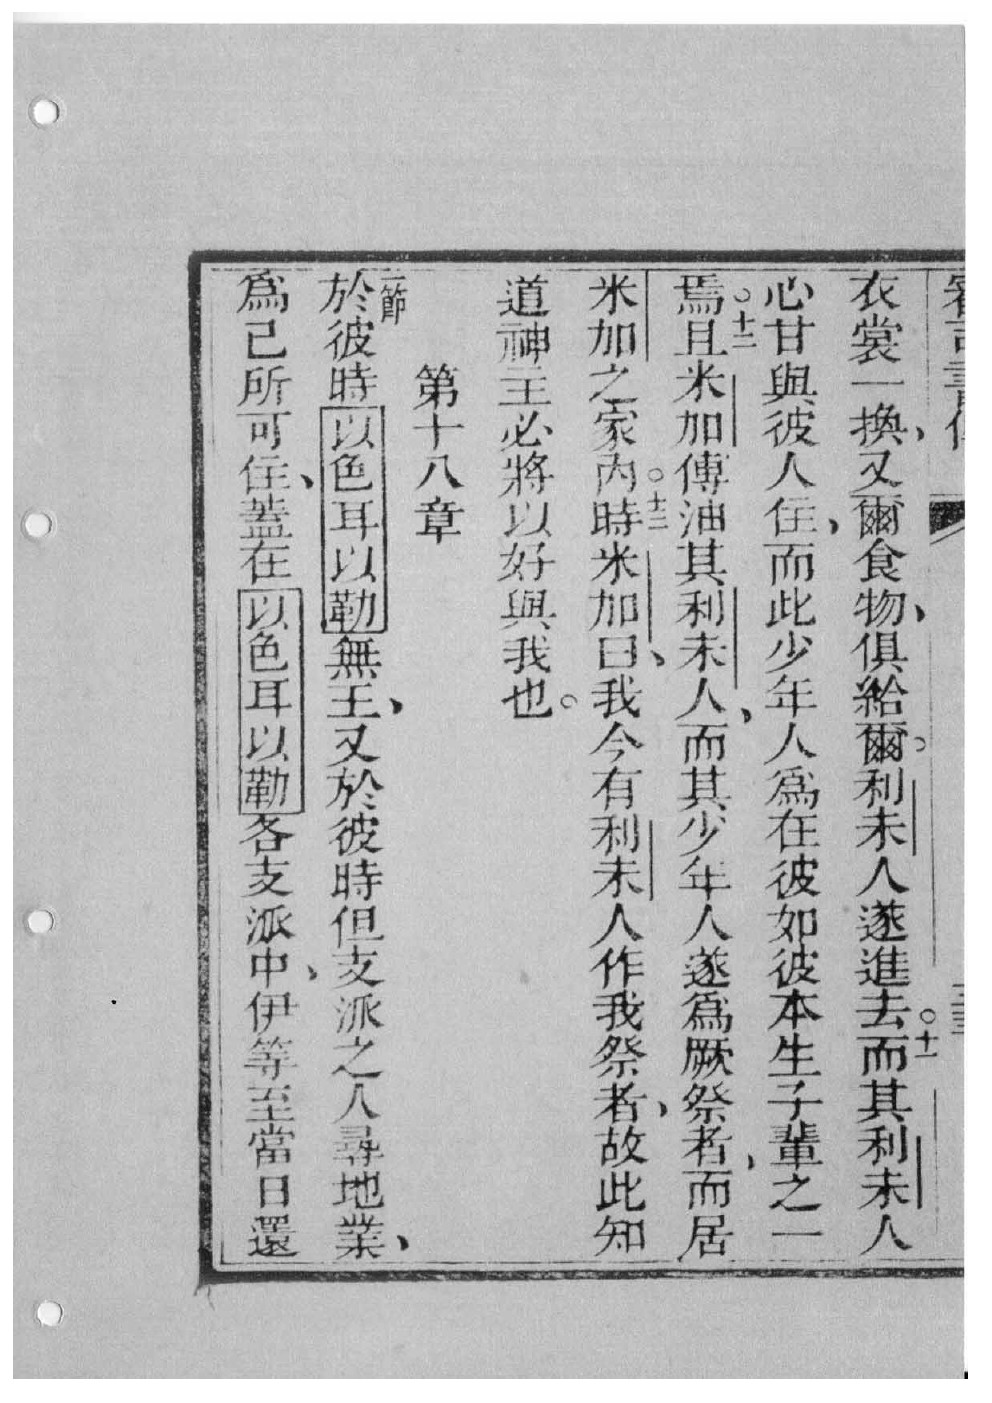 衣裳一換、又爾食物、俱給爾。利未人遂進去○十一而其利未人
心甘與彼人住、而此少年人爲在彼如彼本生子輩之一
焉○十二且米加傅油其利未人、而其少年人遂爲厥祭者、而居
米加之家內○十三時米加曰、我今有利未人作我祭者、故此知
道神主必將以好與我也。
第十八章
一節於彼時以色耳以勒無王、又於彼時但支派之人尋地業、
爲己所可住、蓋在以色耳以勒各支派中、伊等至當日還